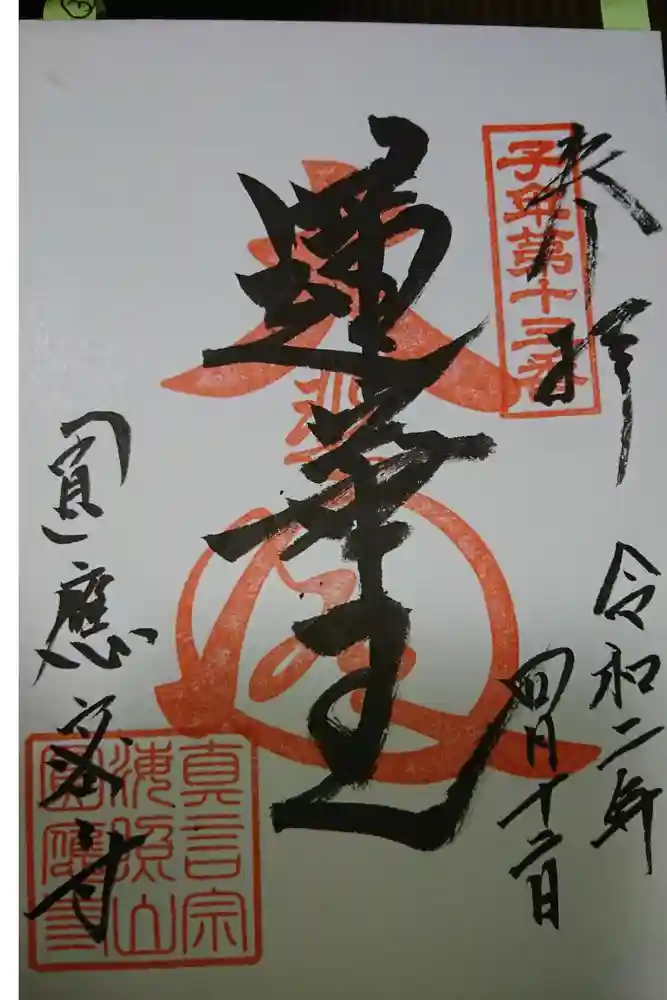 奉拝
子年第十三番
令和二年
四月十二日
蓮華王
圓應密寺
真言宗
海照山